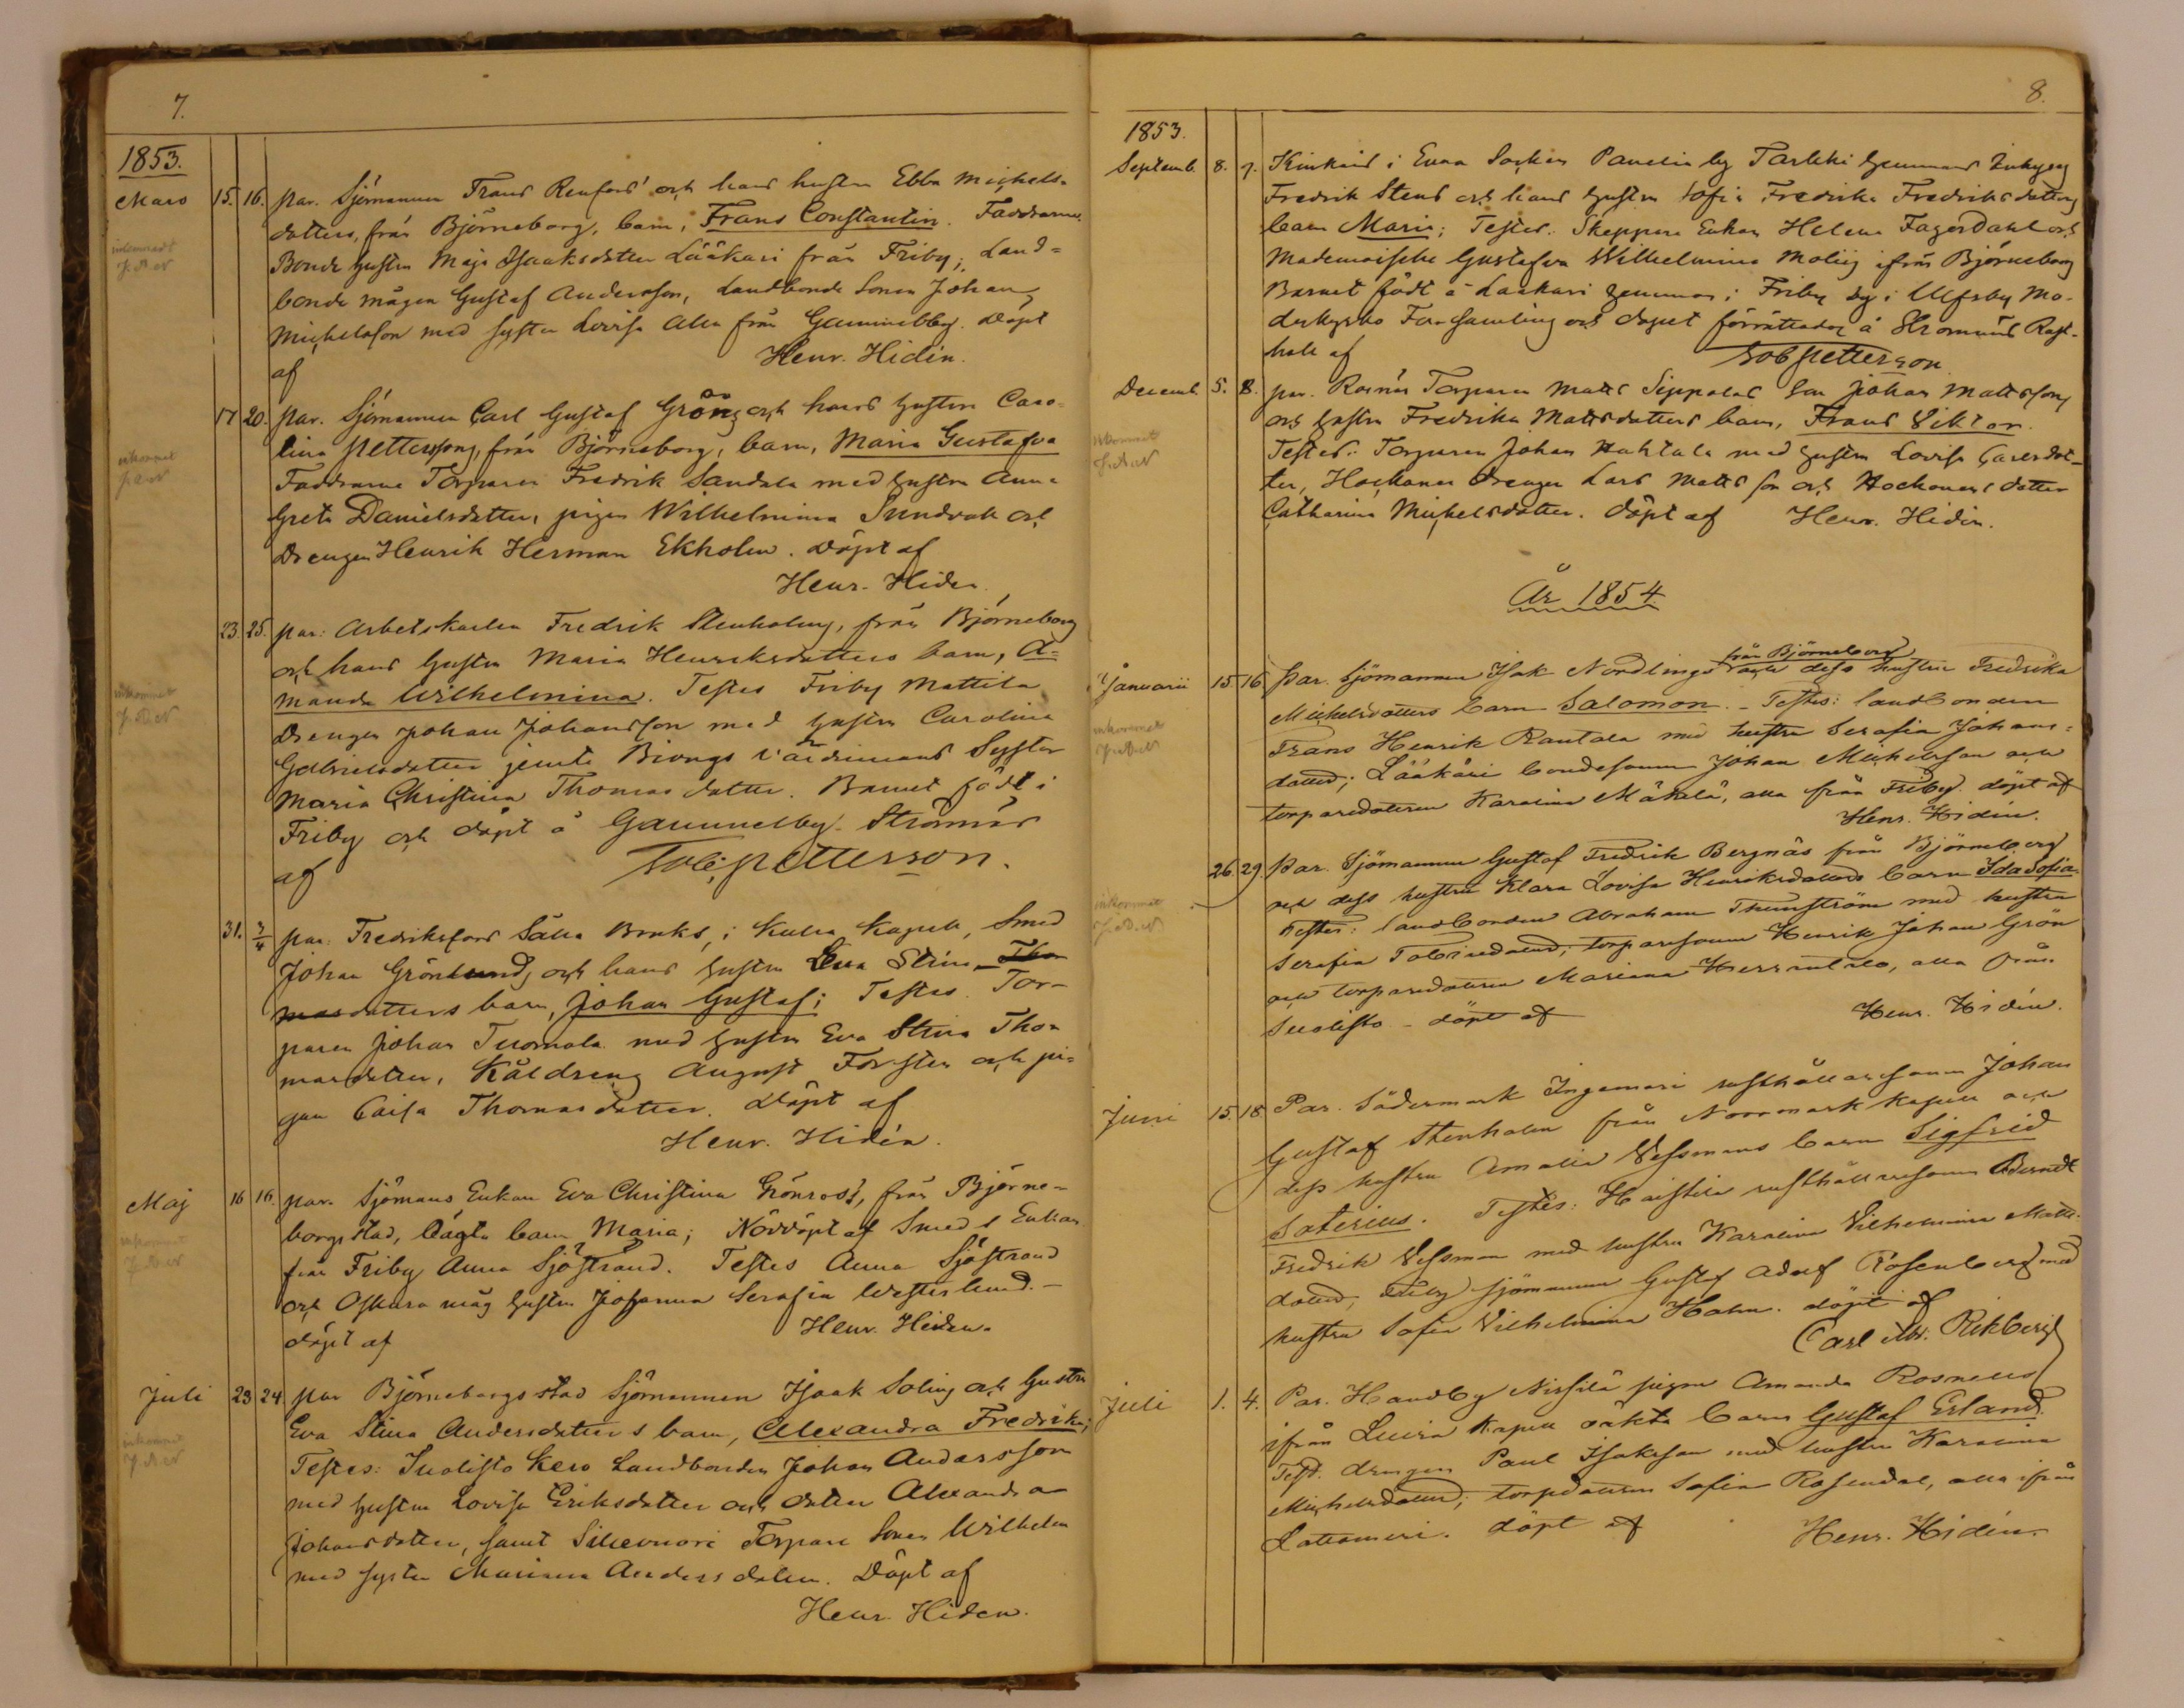 7.
1853.
Mars 15. 16. par. Sjömannen Frans Renfors' och hans hustru Ebba Michels-
dotters, från Björneborg, barn, Frans Constantin. Faddrarne
Bonde hustru Maja Isaaksdotter Lääkäri från Friby; Land-
bonde mågen Gustaf Andersson, Landbonde Sonen Johan
Michelsson med syster Lovisa alla från Gammelby. Döpt
af Henr. Hidén.
17 20. par. Sjömannen Carl Gustaf Grön, och hans hustru Caro-
lina Pettersson, från Björneborg, barn, Maria Gustafva
Faddrarne Torparen Fredrik Sandala med hustru Anna
Greta Danielsdotter, pigan Wilhelmina Sundvall och
Drengen Henrik Herman Ekholm. Döpt af
Henr. Hiden.
23. 25. par: Arbetskarlen Fredrik Stenholm, från Björneborg
och hans hustru Maria Henriksdotters barn, A-
manda Wilhelmina. Testes Friby Mattila
Drengen Johan Johansson med hustru Carolina
Gabrielsdotter jemte Systor
Maria Christina Thomasdotter. Barnet född i
Friby och döpt å Gammelby Strömnäs
af Tob. Petterson.
31. 3/4 par: Fredriksfors Såka Bruks, i Kapell, Smed
Johan Grönlund, och hans hustru Eva Stina Tho
masdotters barn, Johan Gustaf; Testes. Tor-
paren Johan Tuomola med hustru Eva Stina Tho-
masdotter, Käldreng August Forsten och pi-
gan Caisa Thomasdotter. Döpt af
Henr. Hidén.
Maj 16 16. par. Sjömans Enkan Eva Christina Grönroos, från Björne-
borgs stad, oägta barn Maria; Nöddöpt af Smeds Enkan
från Friby Anna Sjöstrand. Testes Anna Sjöstrand
och Oskara måg hustru Johanna Serafia Westerlund.
döpt af Henr. Hiden.
Juli 23 24. par Björneborgs stad Sjömannen Isaak Soling och hustru
Eva Stina Andersdotters barn, Alexandra Fredrika;
Testes: Inolisto Kero Landbonden Johan Andersson
med hustru Lovisa Eriksdotter och dotter Alexandra
Johansdotter, samt Torpare Sonen Wilhelm
med syster Mariana Andersdotter. Döpt af
Henr. Hiden.
8.
1853.
Septemb. 8. 9. i Eura Socken Panelia by Tarkki hemmans Inhyseg
Fredrik Stens och hans hustru Sofia Fredrika Fredriksdotters
barn Maria; Testes. Skeppare Enkan Helena Fagerdahl och
Mademoiselle Gustafva Wilhelmina Moliis ifrån Björneborg
Barnet född å Laakari hemman i Friby by i Ulfsby Mo-
derkyrko Församling och dopet förrättades å Stromnäs Rust-
håll af Tob Petterson
Decemb. 5. 8. par. Rosnäs Torparen Matts Sippolas Son Johan Mattsson,
och hustru Fredrika Mattsdotters barn, Frans Viktor.
Testes: Torparen Johan Hahtala med hustru Lovisa Carlsdot-
ter, Hockanen Drengen Lars Matts son och Hockanens dotter
Catharina Michelsdotter. döpt af Henr. Hidén.
År 1854
Januarii 15. 16. Par. Sjömannen Isak Nordlings från Björneborg och dess hustru Fredrika
Michelsdotters barn Salomon. - Testes: landbonden
Frans Henrik Rantala med hustru Serafia Johans-
dotter; Lääkäri bondesonen Johan Michelsson och
torparedottern Karolina Mäkelä, alla från Friby. döpt af
Henr. Hidén.
26. 29. Par. Sjömannen Gustaf Fredrik Bergnäs från Björneborg
och dess hustru Klara Lovisa Henriksdotters barn Ida Sofia.
Testes: landbonden Abraham Thunström med hustru
Serafia Tobiasdotter; torparesonen Henrik Johan Grön
och torparedottern Mariana, alla från
Suolisto - döpt af Henr. Hidén.
Juni 15. 18. Par. Södermark Ingemari rusthållaresonen Johan
Gustaf Stenholm från Norrmark kapell och
dess hustru Amalia Wessmans barn Sigfrid
Soterius. Testes: Haistila rusthållaresonen Berndt
Fredrik Wessman med hustru Karolina Wilhelmina Matts-
dotter, Friby sjömannen Gustaf Adolf Rosenberg med
hustru Sofia Vilhelmina Holm. döpt af
Carl Rikberg
Juli 1. 4. Par. Handby Nissilä pigan Amanda Rosnells
ifrån Luvia kapell oäkta barn Gustaf Erland.
Test. drengen Paul Isaksson med hustru Karolina
Michelsdotter; torpdottern Sofia Rosendal, alla ifrån
Lattomeri. döpt af Henr. Hidén.